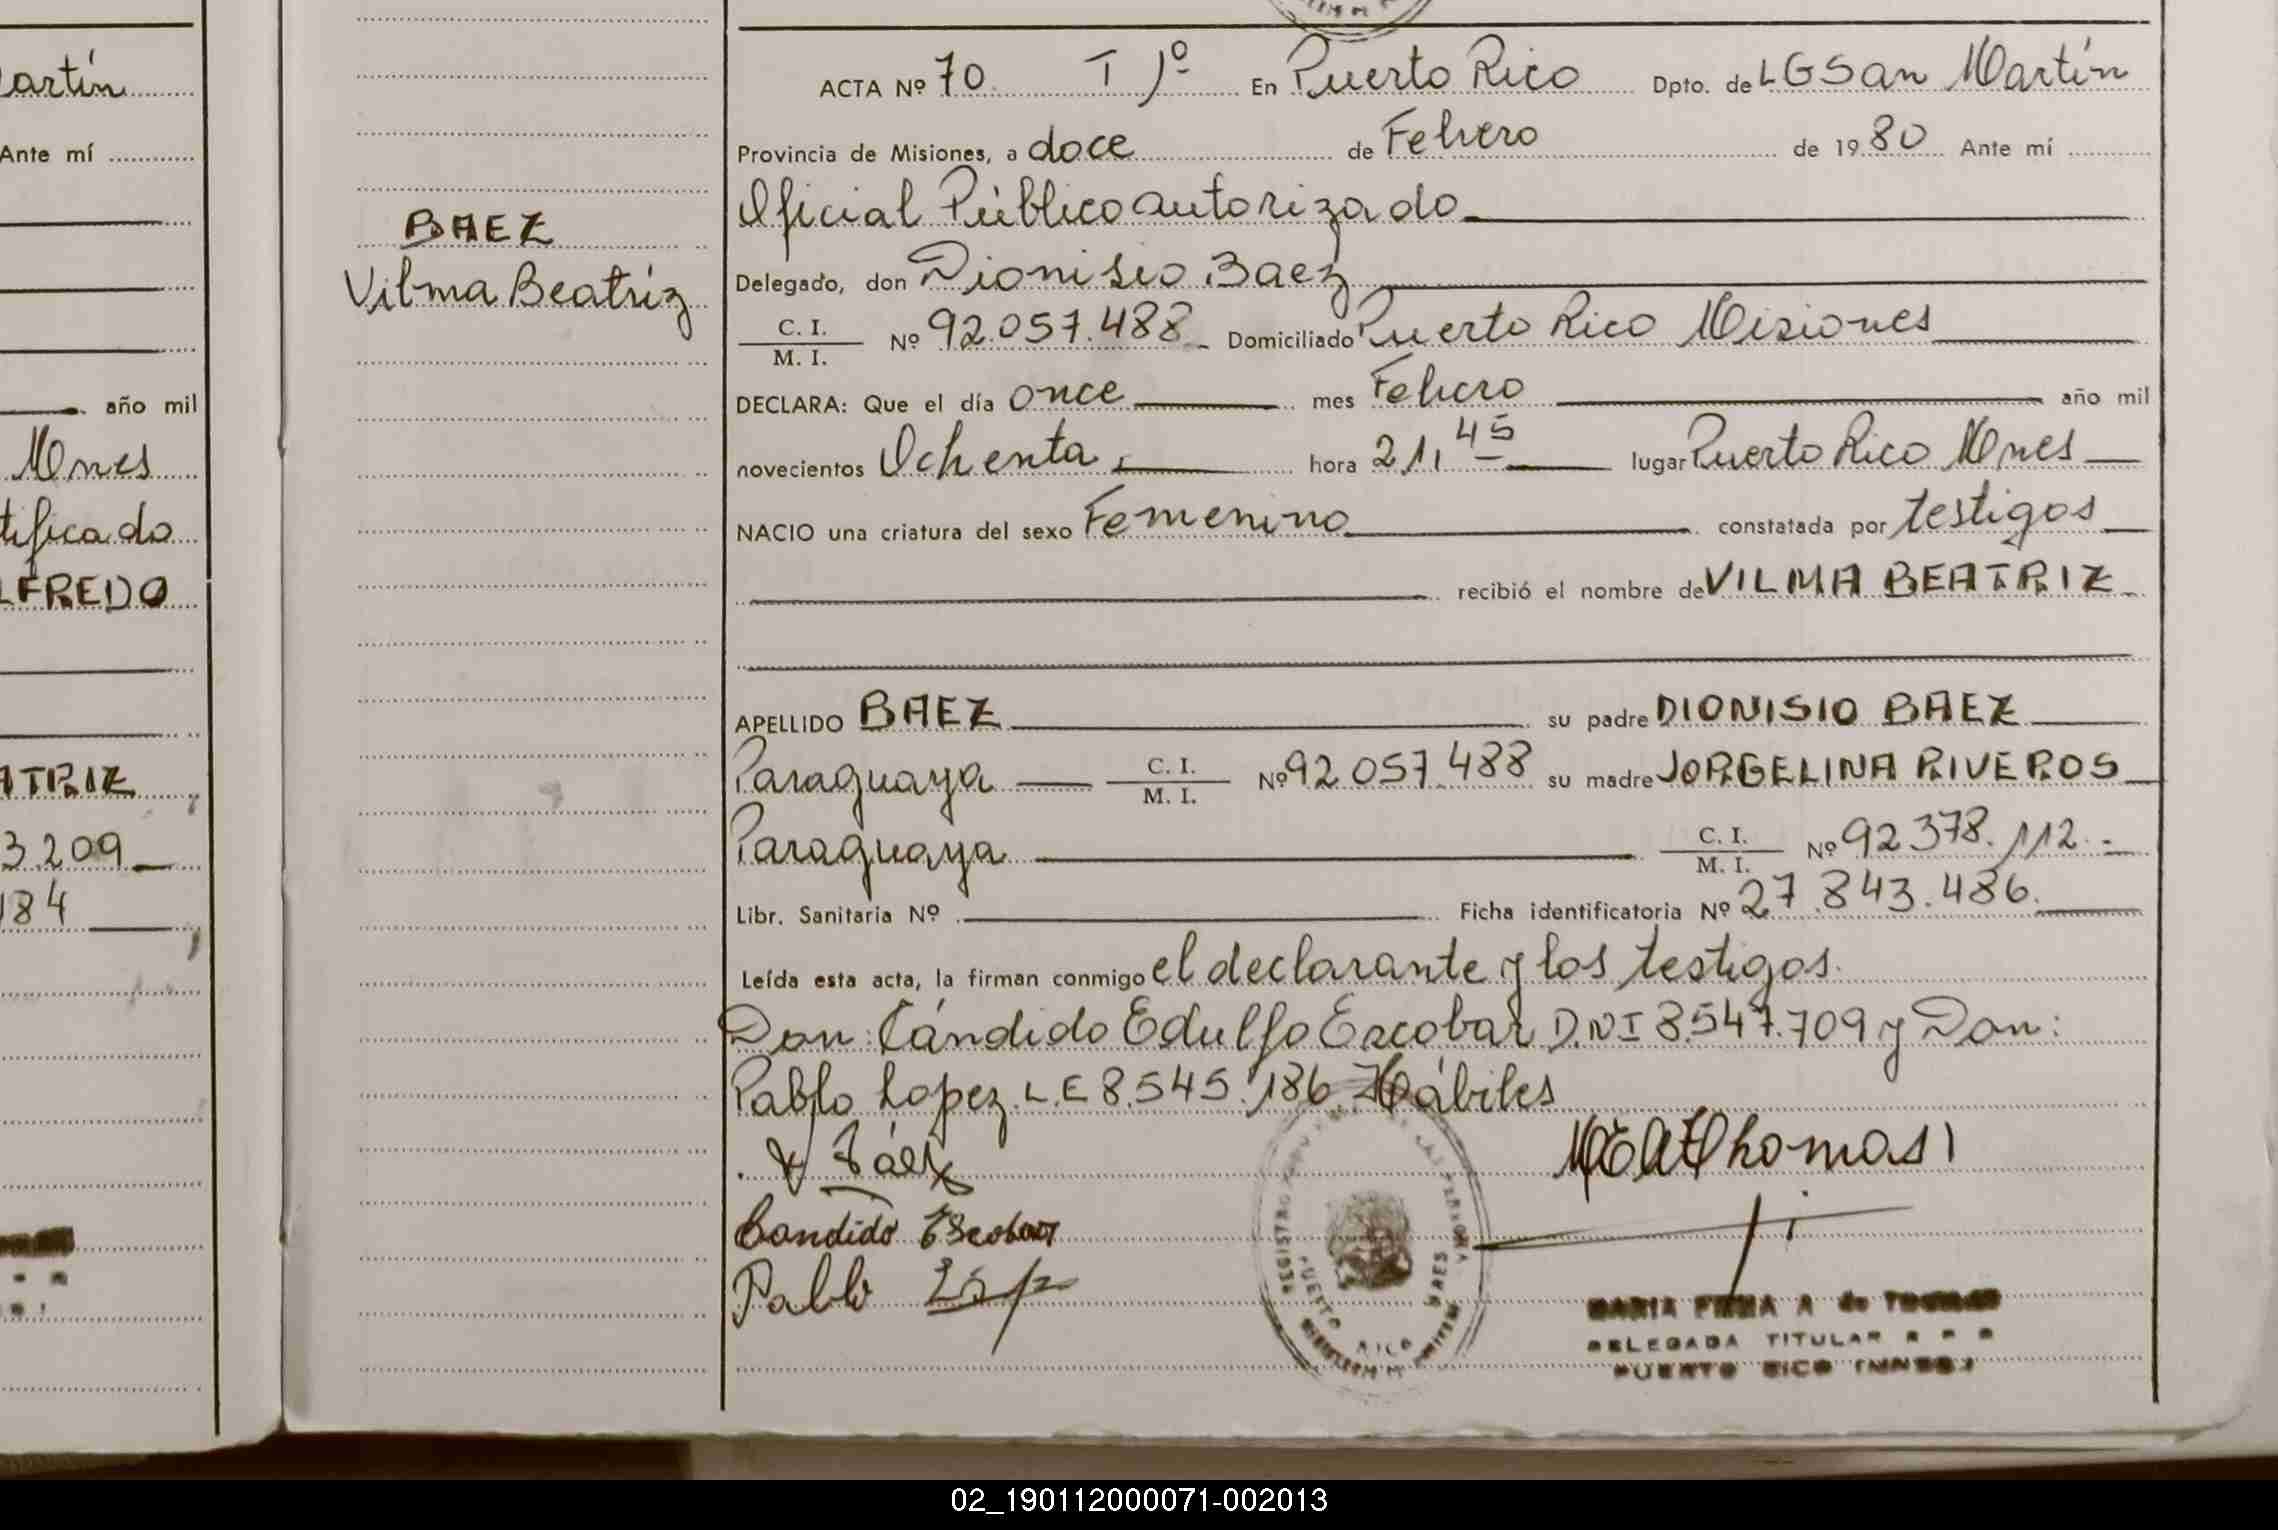 artín
Ante mí
año mil
Mnes
tificado
LFREDO
ATRIZ
3.209
184
BAEZ
Vilma Beatriz
ACTA Nº 70 T 1º En Puerto Rico Dpto. de LGSan Martín
Provincia de Misiones, a doce de Febrero de 1980 Ante mí
Oficial Público autorizado
Delegado, don Dionisio Baez
C. I.
M. I. Nº 92.057.488 Domiciliado Puerto Rico Misiones
DECLARA: Que el día once mes Febrero año mil
novecientos Ochenta hora 21,45 lugar Puerto Rico Mnes
NACIO una criatura del sexo Femenino constatada por testigos
recibió el nombre de VILMA BEATRIZ
APELLIDO BAEZ su padre DIONISIO BAEZ
Paraguaya C. I.
M. I. Nº 92.057.488 su madre JORGELINA RIVEROS
Paraguaya C. I.
M. I. Nº 92.378.112.-
Libr. Sanitaria Nº Ficha identificatoria Nº 27.843.486.
Leída esta acta, la firman conmigo el declarante y los testigos.
Don: Cándido Edulfo Escobar D.N.I 8.547.709 y Don:
Pablo Lopez L.E 8.545.186 Hábiles
Báez
Candido Escobar
Pablo
PUERTO RICO
MARIA A de
DELEGADA TITULAR
PUERTO RICO (MNES)
02_190112000071-002013